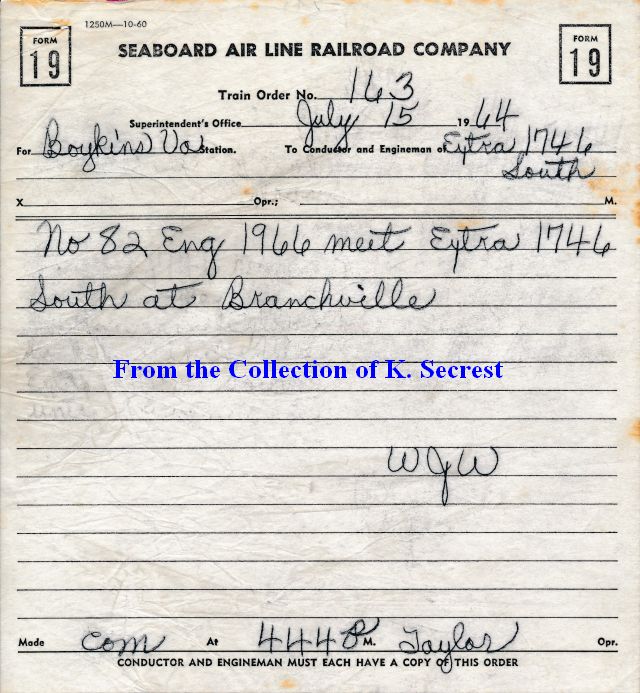 1250M—10-60
FORM 19
SEABOARD AIR LINE RAILROAD COMPANY
FORM 19
Train Order No. 163
Superintendent's Office July 15 1964
For Boykins Va Station. To Conductor and Engineman of Extra 1746
South
X Opr.; M.
No 82 Eng 1966 meet Extra 1746
South at Branchville
From the Collection of K. Secrest
WJW
Made Com At 444 P M. Taylor Opr.
CONDUCTOR AND ENGINEMAN MUST EACH HAVE A COPY OF THIS ORDER